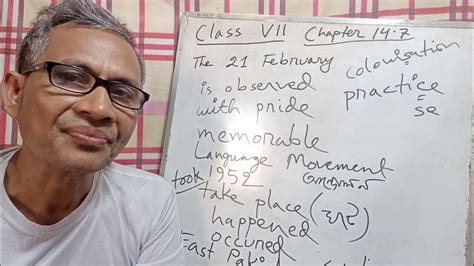 Class VII Chapter 14.7
The 21 February
colonisation
is observed
practice
with pride
se
memorable
Language Movement
took 1952
take place
happened
occured
East Pak